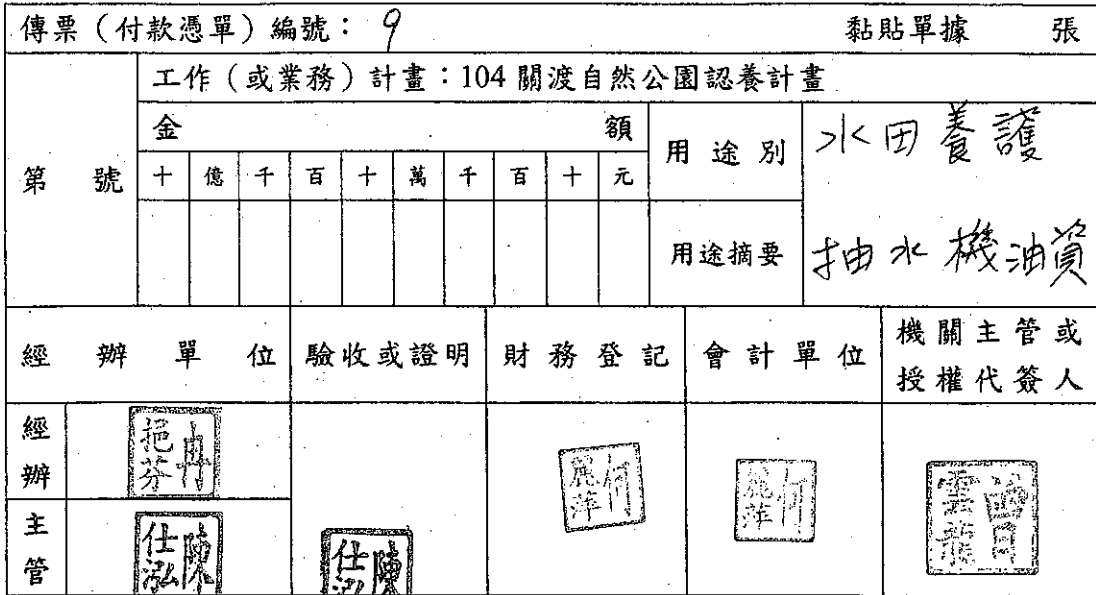 傳票（付款憑單）編號：9 黏貼單據 張
工作（或業務）計畫：104 關渡自然公園認養計畫
第 號
金 額
十 億 千 百 十 萬 千 百 十 元
用途別 水田養護
用途摘要 抽水機油資
經辦單位 驗收或證明 財務登記 會計單位 機關主管或
授權代簽人
經辦
冉挹芬
何麗萍
何麗萍
雲龍
主管
陳仕泓
陳仕泓